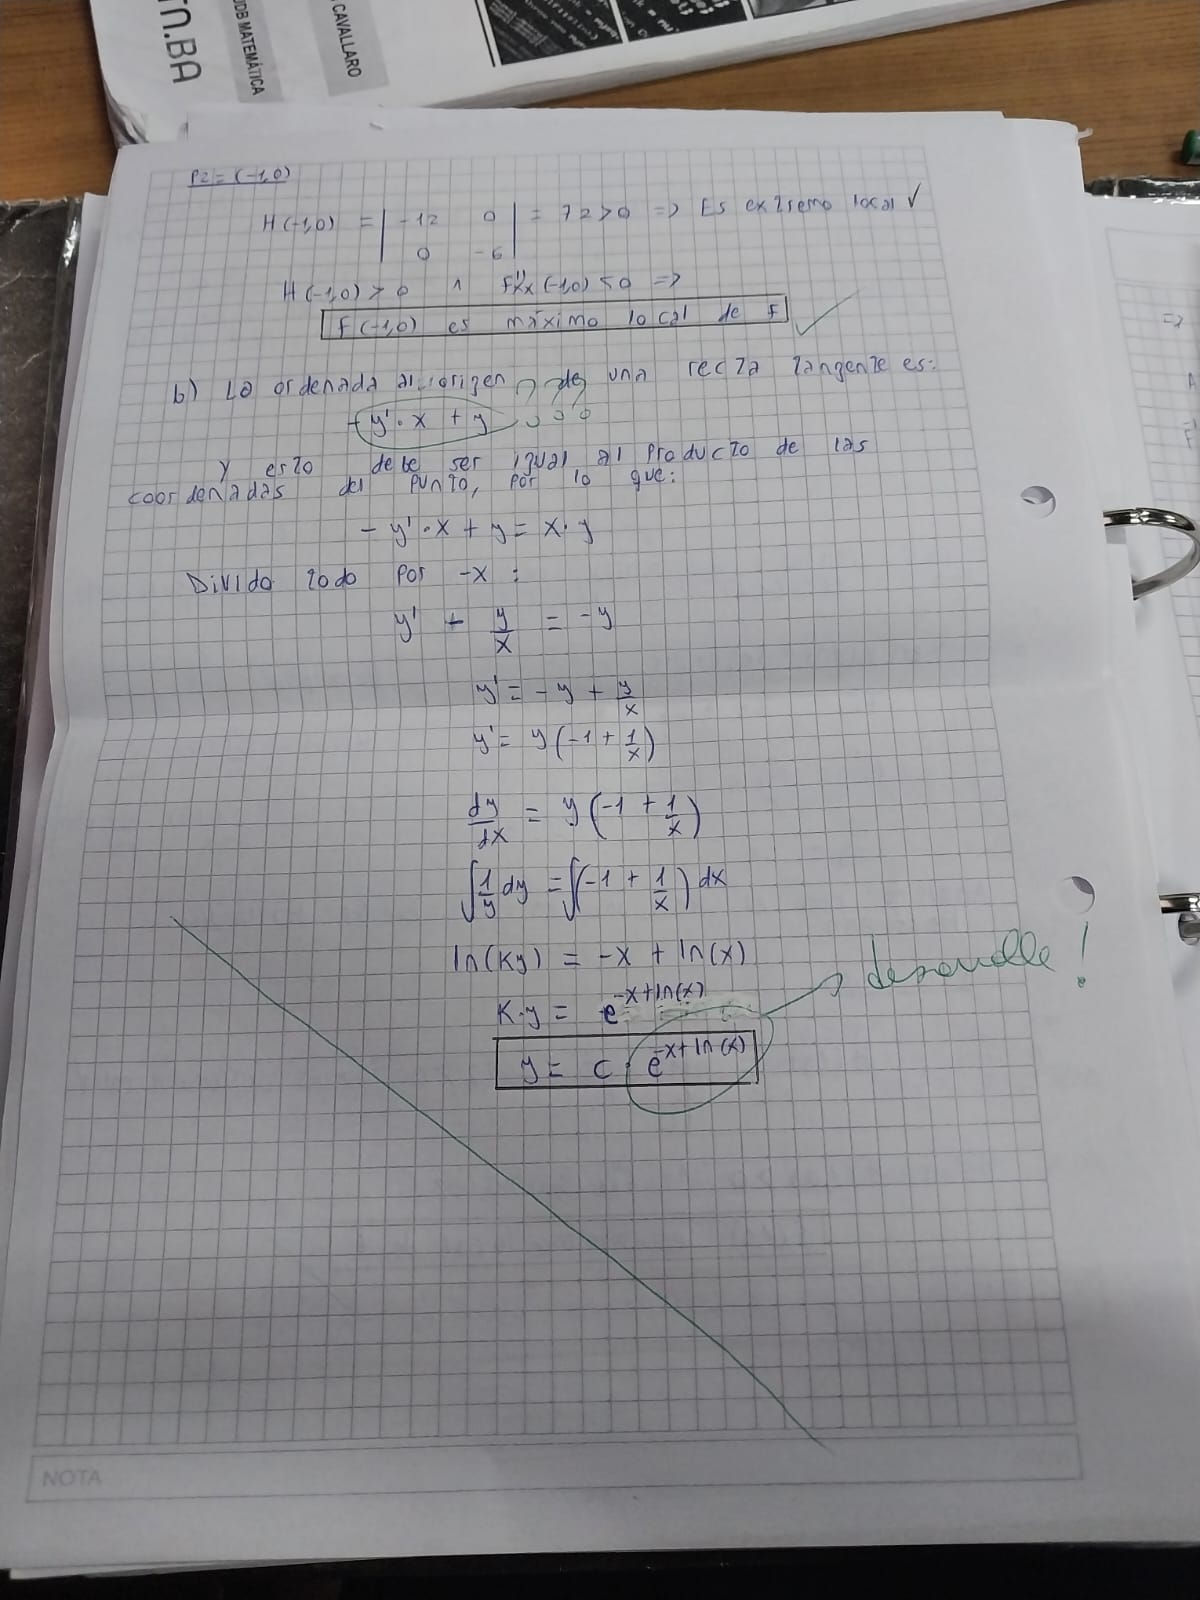 TN.BA
UDB MATEMÁTICA
CAVALLARO
P2 = (-1,0)
H(-1,0) = | -12 0 | = 72 > 0 => Es extremo local ✓
| 0 -6 |
H(-1,0) > 0 ∧ F''xx (-1,0) < 0 =>
F(-1,0) es máximo local de F ✓
b) La ordenada al origen de una recta tangente es:
- y' · x + y
Y esto debe ser igual al producto de las
coordenadas del punto, por lo que:
- y' · x + y = x · y
Divido todo por -x :
y' - y/x = -y
y' = - y + y/x
y' = y(-1 + 1/x)
dy/dx = y(-1 + 1/x)
∫ 1/y dy = ∫(-1 + 1/x) dx
ln(Ky) = -x + ln(x)
K·y = e^-x+ln(x)
desarrolle!
y = c e^-x+ln(x)
NOTA